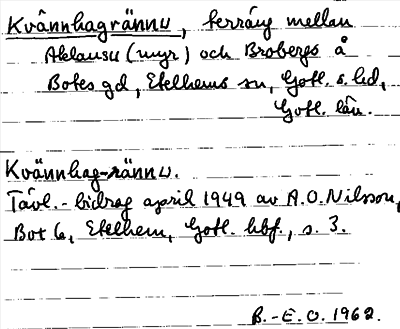 Kvånnhagrännu, terräng mellan
Aklausu (myr) och Brobergs å
Botes gd, Etelhems sn, Gotl. s. hd,
Gotl. län.
Kvännhag-rännu.
Tävl.-bidrag april 1949 av A.O. Nilsson,
Bot 6, Etelhem, Gotl. hbf., s. 3.
B.-E.O. 1962.